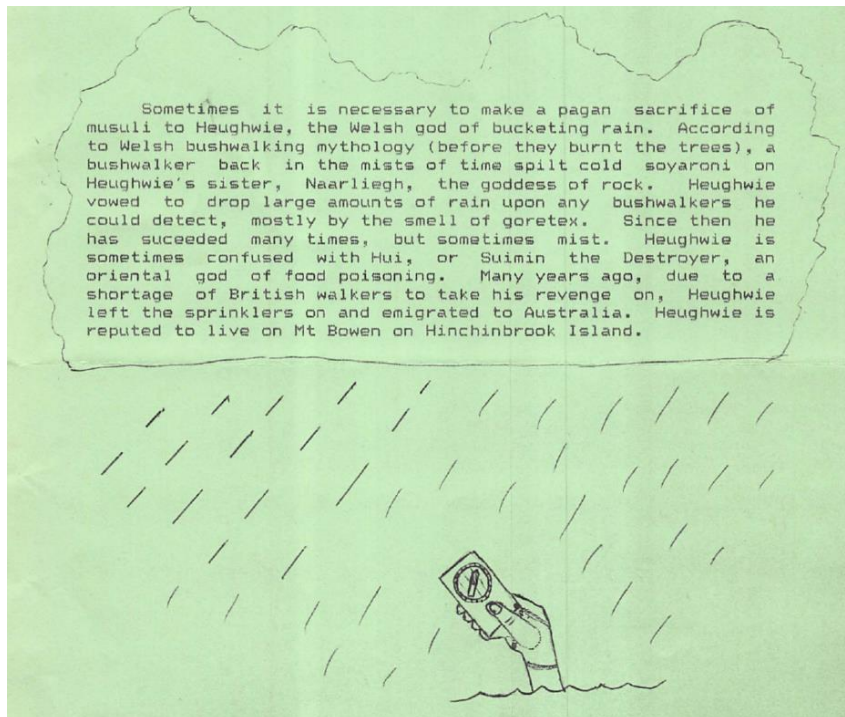 Sometimes it is necessary to make a pagan sacrifice of
musuli to Heughwie, the Welsh god of bucketing rain. According
to Welsh bushwalking mythology (before they burnt the trees), a
bushwalker back in the mists of time spilt cold soyaroni on
Heughwie's sister, Naarliegh, the goddess of rock. Heughwie
vowed to drop large amounts of rain upon any bushwalkers he
could detect, mostly by the smell of goretex. Since then he
has suceeded many times, but sometimes mist. Heughwie is
sometimes confused with Hui, or Suimin the Destroyer, an
oriental god of food poisoning. Many years ago, due to a
shortage of British walkers to take his revenge on, Heughwie
left the sprinklers on and emigrated to Australia. Heughwie is
reputed to live on Mt Bowen on Hinchinbrook Island.